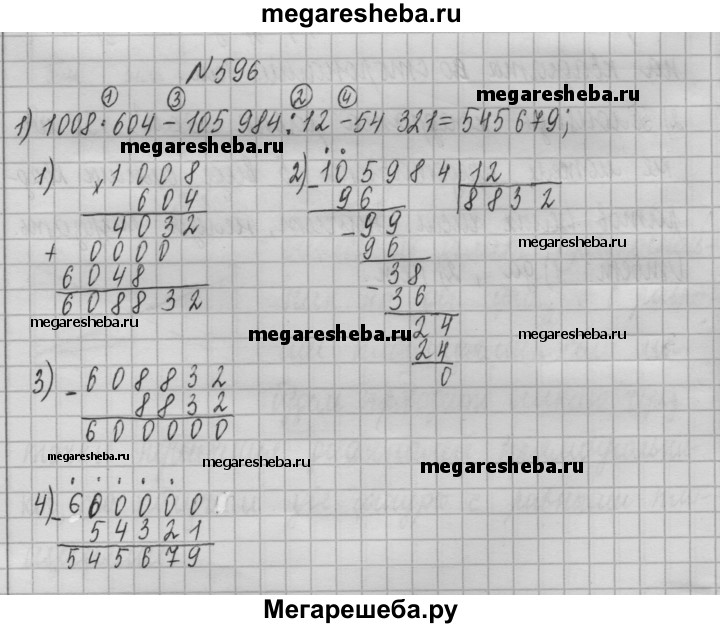 megaresheba.ru
№596
① ③ ② ④
1) 1008·604-105 984:12-54 321=545679;
megaresheba.ru
1) ×1008
604
4032
+ 0000
6048
608832
megaresheba.ru
2) -105984 | 12
96 8832
-99
96
-38
36
24
24
0
megaresheba.ru
megaresheba.ru
megaresheba.ru
megaresheba.ru
3) -608832
8832
600000
megaresheba.ru
megaresheba.ru
megaresheba.ru
4) -600000
54321
545679
Мегарешеба.ру